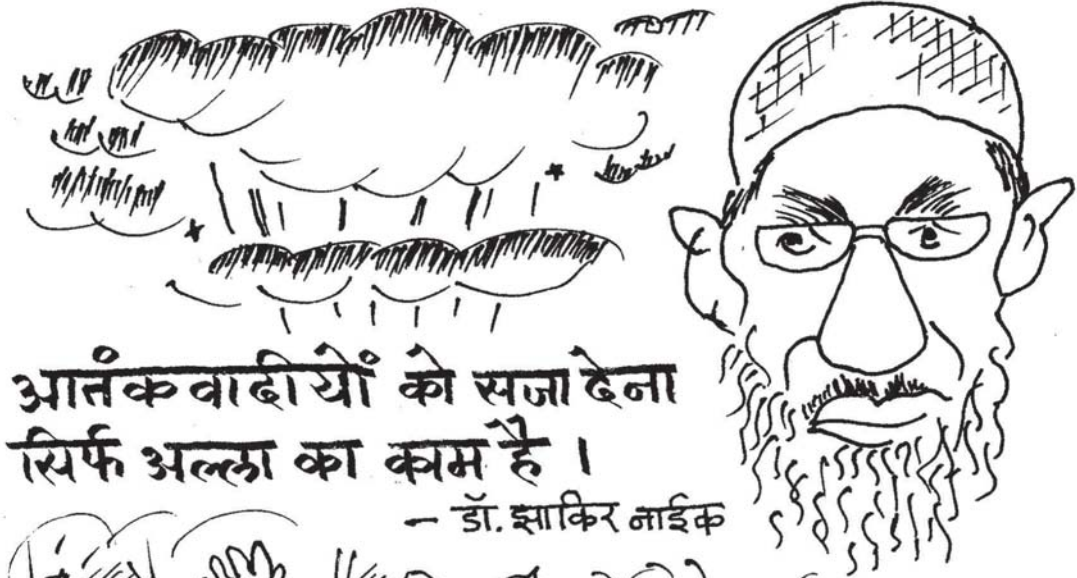 आतंकवादीयों को सजा देना
सिर्फ अल्ला का काम है।
– डॉ. झाकिर नाईक